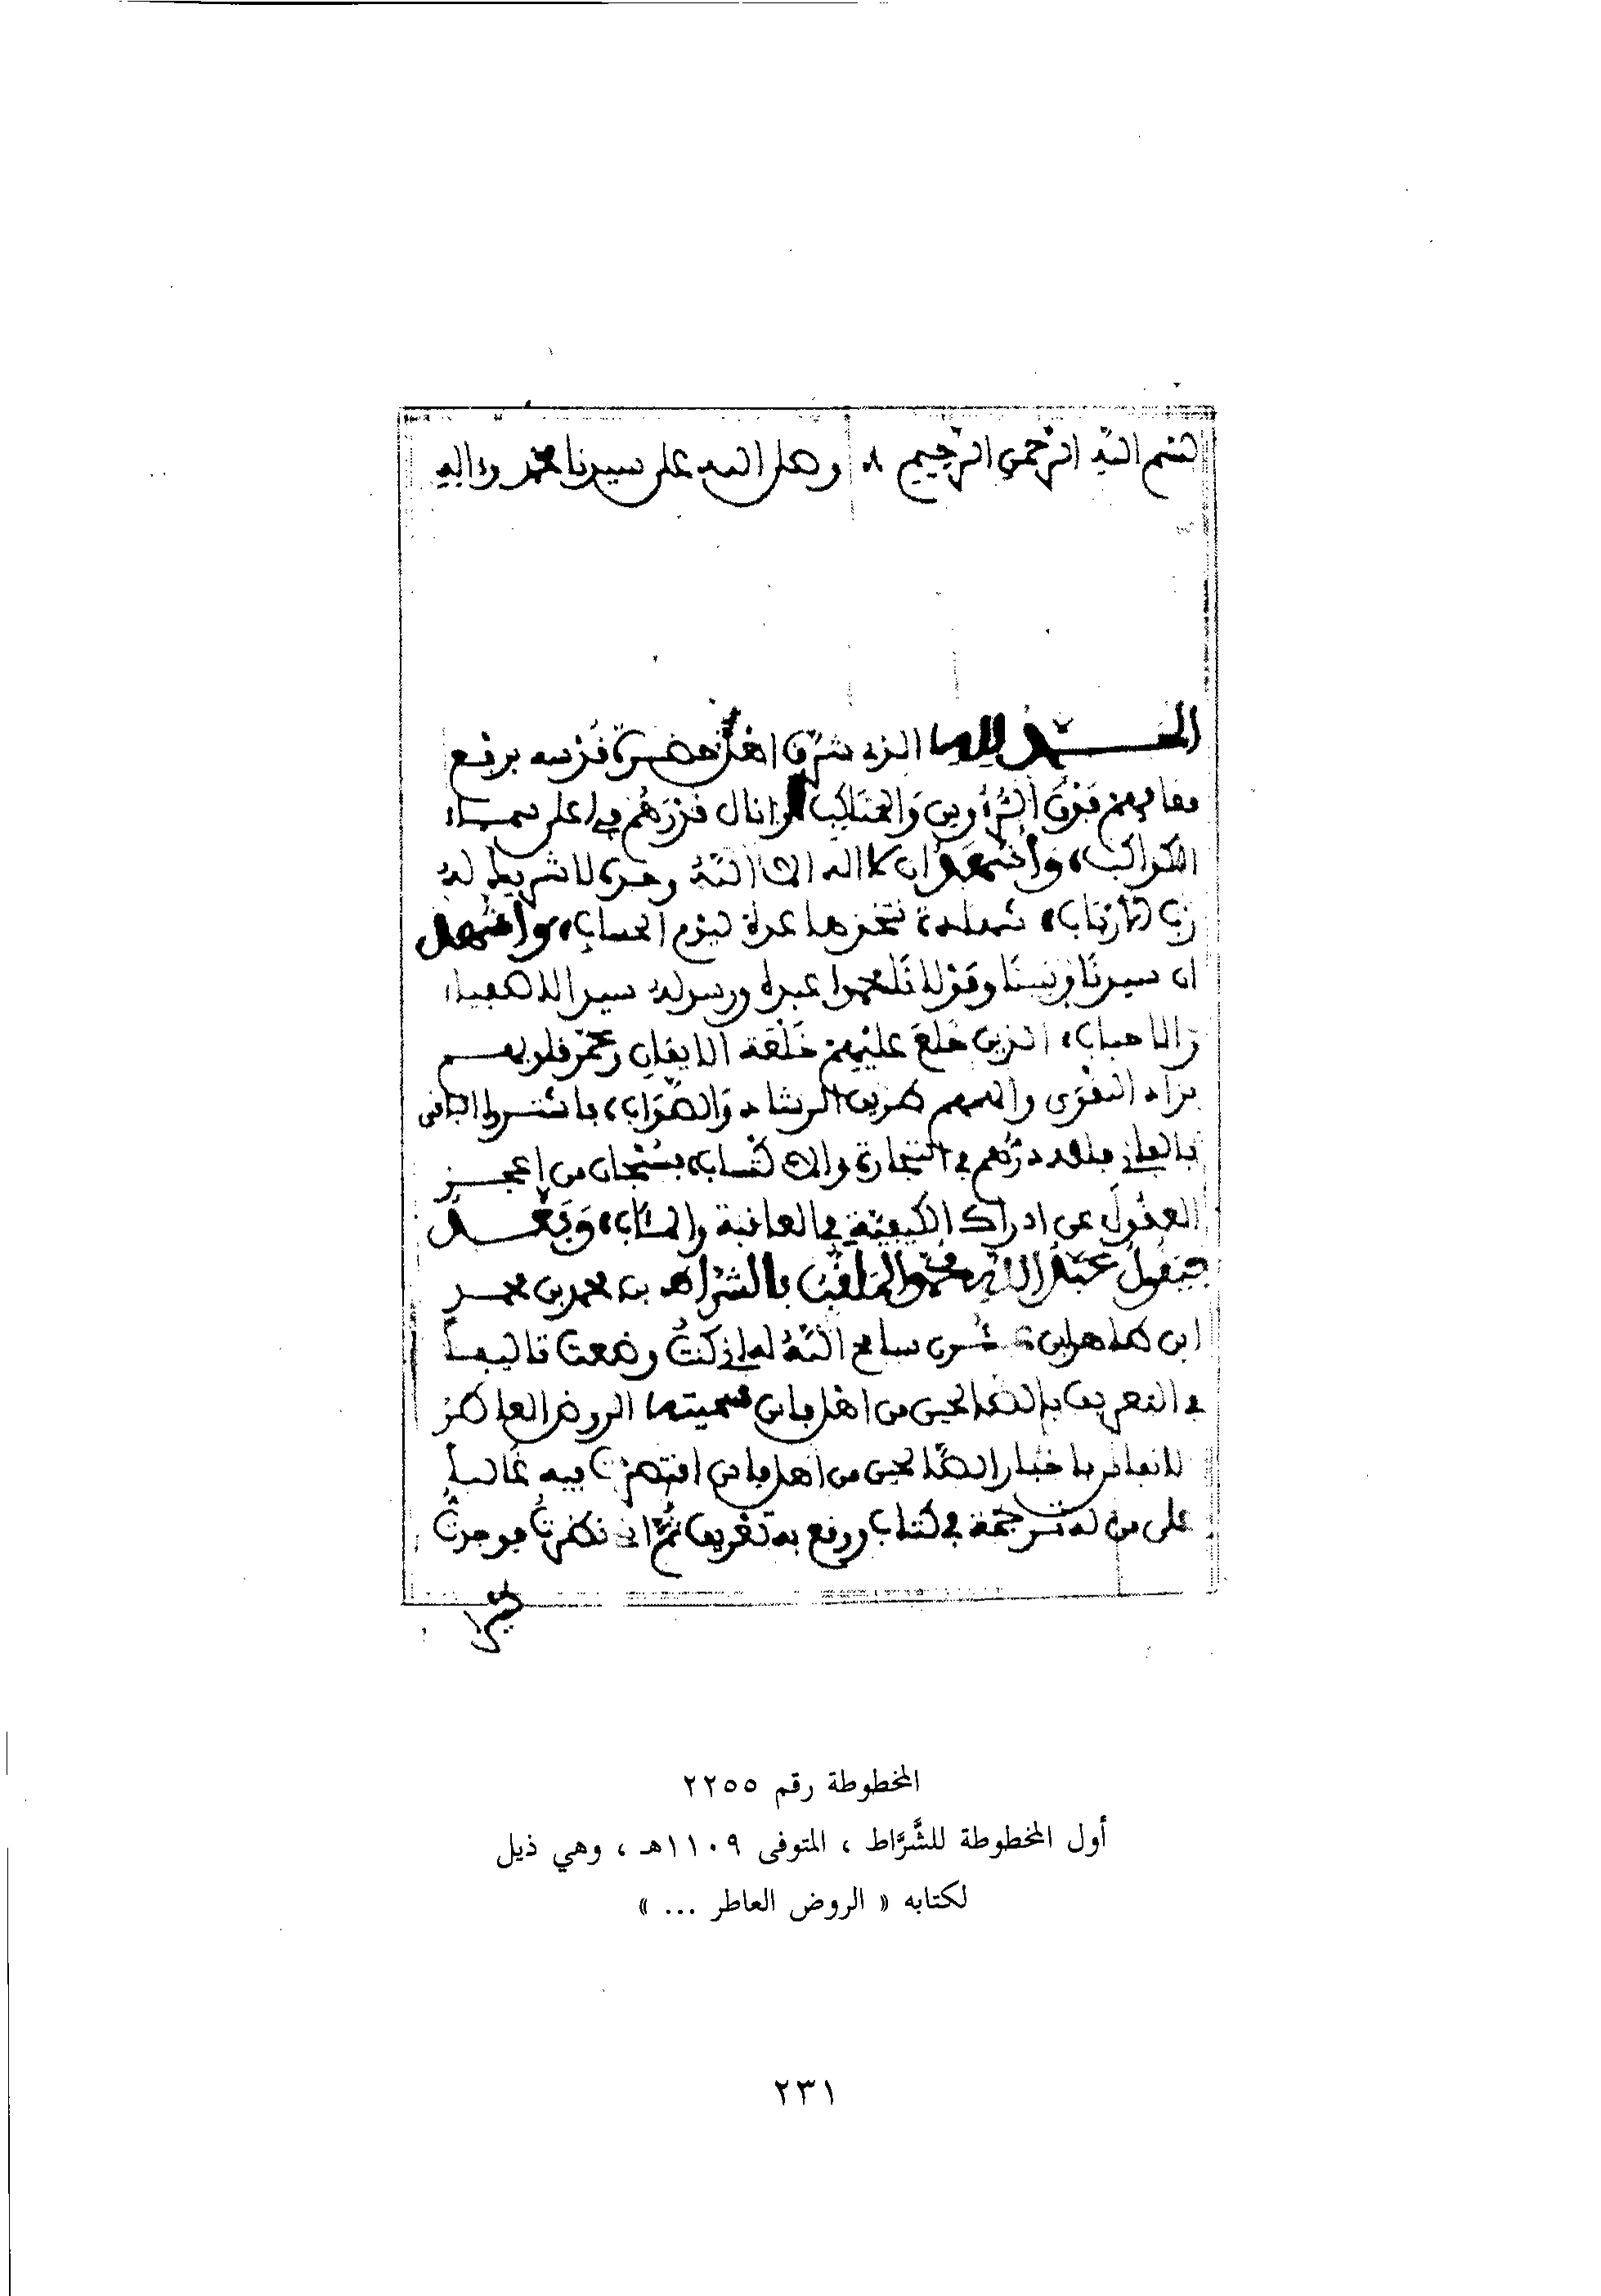 بسم الله الرحمن الرحيم وصلى الله على سيدنا محمد وءاله
الحمد لله الذي شرف اهل حضرة قدسه برفع
مقامهم فوق وانال قدرهم في اعلى سماء
الكواكب، وأشهد ان لا اله الا الله وحده لا شريك له
رب الارباب، شهادة نتخذها عدة ليوم الحساب، وأشهد
ان سيدنا ونبينا ومولانا محمدا عبده ورسوله سيد الاصفياء
والاحباب، الذين خلع عليهم خلعة الايقان وعمر قلوبهم
بزاد التقوى والهمهم طريق الرشاد والصواب، باشتروا الباقي
بالفاني في التجارة والاكتساب، بسبحان من اعجز
العقول عن ادراك الكيفية في العاقبة والمئاب، وبعد
فيقول عبد الله محمد الملقب بالشراط بن محمد بن محمد
ابن سامح الله له اني كنت وضعت تاليفا
في التعريف بالصالحين من اهل فاس سميته الروض العاطر
الانفاس باخبار الصالحين من اهل فاس اقتصرت فيه غالبا
على من له ترجمة في كتاب ووقع به تعريف ثم اني نظرت فوجدت
المخطوطة رقم ٢٢٥٥
أول المخطوطة للشَّرَّاط ، المتوفى ١١٠٩هـ ، وهي ذيل
لكتابه « الروض العاطر ... »
٢٣١